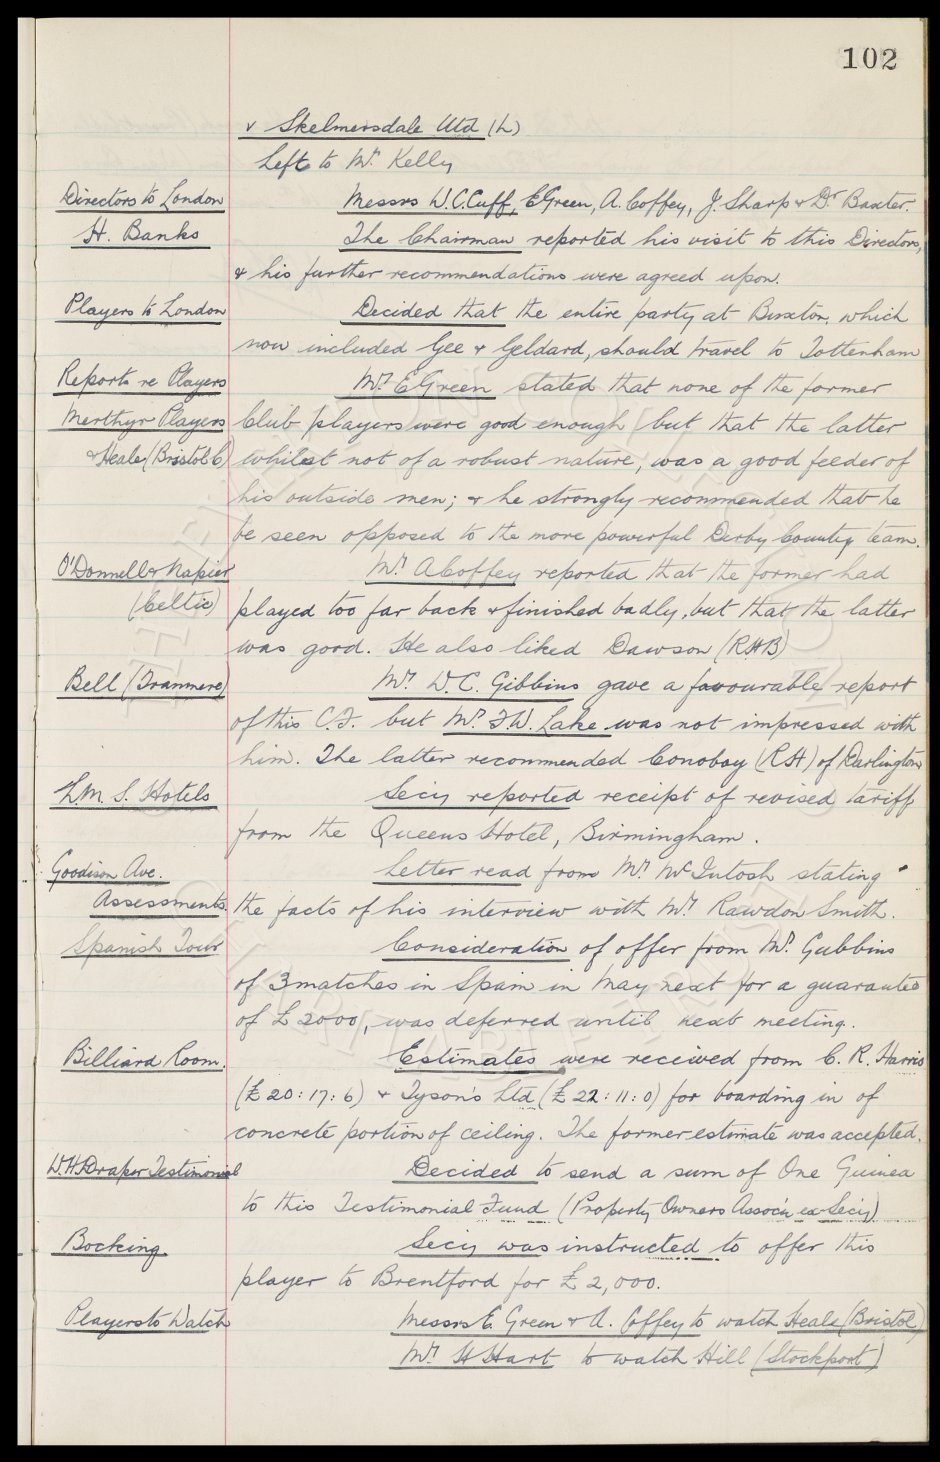 102
v Skelmersdale Utd (L)
Left to Mr Kelly
Directors to London
Messrs W.C. Cuff, E Green, A. Coffey, J. Sharp & Dr Baxter.
H. Banks
The Chairman reported his visit to this Directors,
& his further recommendations were agreed upon.
Players to London
Decided that the entire party at Buxton, which
now included Gee & Geldard, should travel to Tottenham
Reports re Players
Mr E Green stated that none of the former
Merthyr Players
Club players were good enough but that the latter
& Heale (Bristol C)
whilst not of a robust nature, was a good feeder of
his outside men; & he strongly recommended that he
be seen opposed to the more powerful Derby County team.
O'Donnell & Napier
Mr A Coffey reported that the former had
(Celtic)
played too far back & finished badly, but that the latter
was good. He also liked Dawson (RHB)
Bell (Tranmere)
Mr W.C. Gibbins gave a favourable report
of this C.F. but Mr F.W. Lake was not impressed with
him. The latter recommended Conoboy (RH) of Darlington
L.M.S. Hotels
Secy reported receipt of revised tariff
from the Queens Hotel, Birmingham.
Goodison Ave.
Letter read from Mr McIntosh stating
Assessments.
the facts of his interview with Mr Rawdon Smith.
Spanish Tour
Consideration of offer from Mr Gubbins
of 3 matches in Spain in May next for a guarantee
of £2000, was deferred until next meeting.
Billiard Room.
Estimates were received from C. R. Harris
(£20:17:6) & Tyson's Ltd (£22:11:0) for boarding in of
concrete portion of ceiling. The former estimate was accepted.
W.H. Draper Testimonial
Decided to send a sum of One Guinea
to this Testimonial Fund (Property Owners Assoc'n ex Secy)
Bocking
Secy was instructed to offer this
player to Brentford for £2,000.
Players to Watch
Messrs E. Green & A. Coffey to watch Heale (Bristol)
Mr H Hart to watch Hill (Stockport)